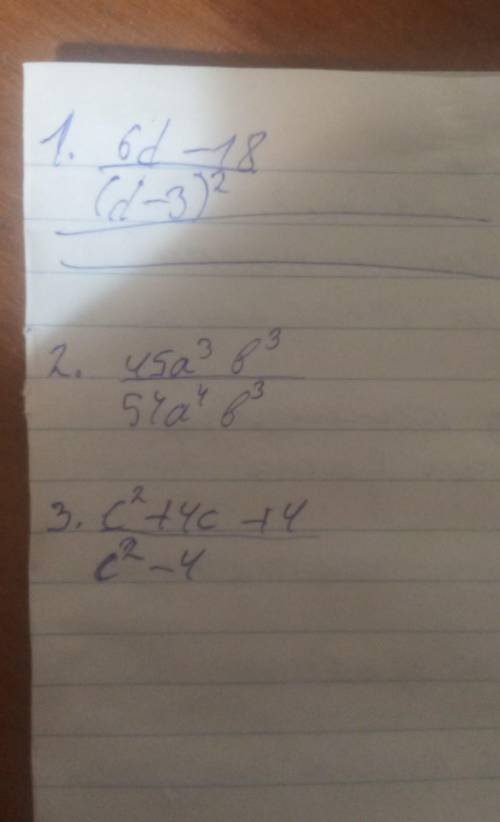 1. 6d - 18
(d - 3)²
2. 45a³ в³
54a⁴ в³
3. c² + 4c + 4
c² - 4